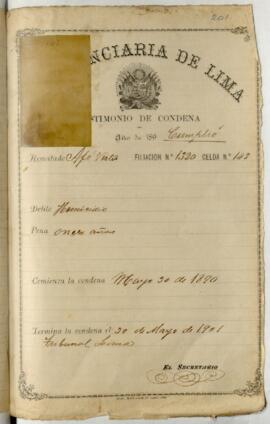 201
NCIARIA DE LIMA
STIMONIO DE CONDENA
Año de 189 Cumplió
Rematado FILIACION N.º 1320 CELDA N.º 143
Delito Homicidio
Pena once años
Comienza la condena Mayo 30 de 1890
Termina la condena el 30 de Mayo de 1901
Tribunal
EL SECRETARIO